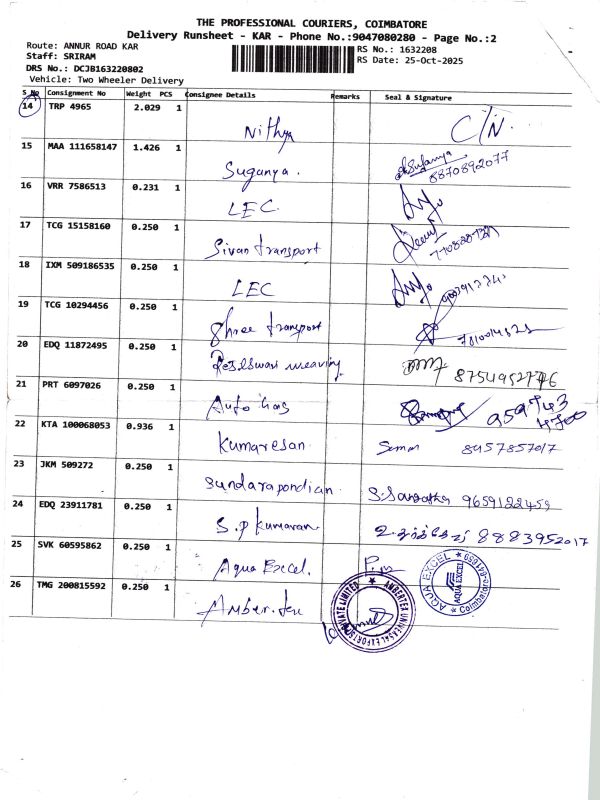 THE PROFESSIONAL COURIERS, COIMBATORE
Delivery Runsheet - KAR - Phone No.:9047080280 - Page No.:2
Route: ANNUR ROAD KAR
RS No.: 1632208
Staff: SRIRAM
RS Date: 25-Oct-2025
DRS No.: DCJB163220802
Vehicle: Two Wheeler Delivery
S No Consignment No Weight PCS Consignee Details Remarks Seal & Signature
14 TRP 4965 2.029 1 Nithya C/N.
15 MAA 111658147 1.426 1 Suganya. 8870892077
16 VRR 7586513 0.231 1 LEC.
17 TCG 15158160 0.250 1 Sivan transport
18 IXM 509186535 0.250 1 LEC
19 TCG 10294456 0.250 1 Shree transport
20 EDQ 11872495 0.250 1 weaving
21 PRT 6097026 0.250 1 Auto Gas
22 KTA 100068053 0.936 1 Kumaresan 8457857017
23 JKM 509272 0.250 1 Sundarapondian 9659122459
24 EDQ 23911781 0.250 1 S.P Kumaran 8883952017
25 SVK 60595862 0.250 1 Aqua Excel.
AQUA EXCEL
AQUA EXCEL
Coimbatore-641659
26 TMG 200815592 0.250 1
AMBERTEX UNIVERSAL EXPORTS PRIVATE LIMITED